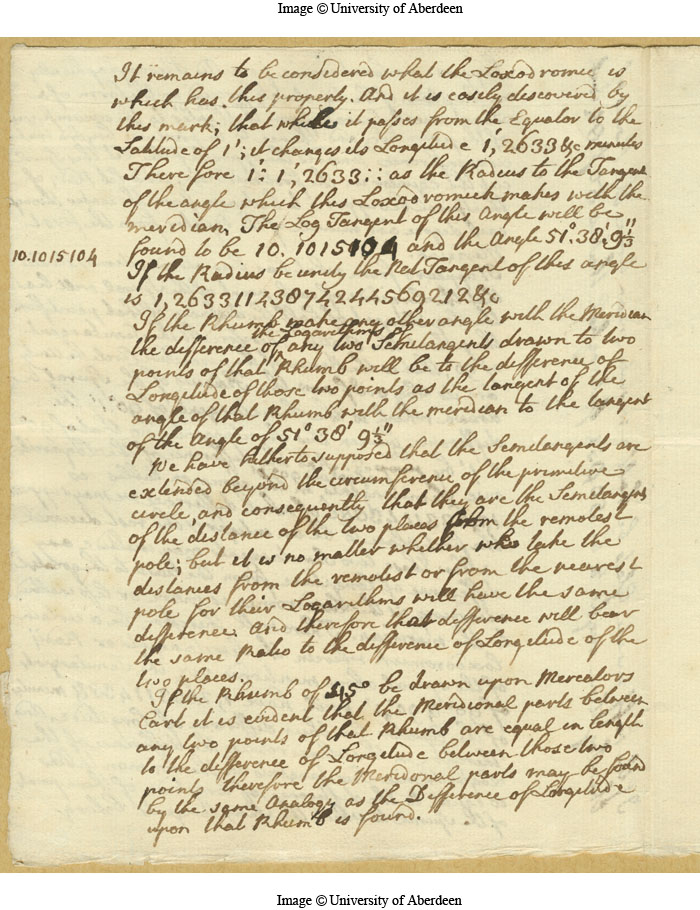 Image © University of Aberdeen
It remains to be considered what the Loxodromic is
which has this property. And it is easily discovered by
this mark; that while it passes from the Equator to the
Latitude of 1'; it changes its Longitude 1', 2633 &c minutes
Therefore 1' : 1', 2633 :: as the Radius to the Tangent
of the angle which this Loxodromick makes with the
meridian. The Log Tangent of this Angle will be
found to be 10. 1015104 and the Angle 51°. 38'. 9 1/3''
10.1015104
If the Radius be unity the Nat Tangent of this angle
is 1, 2633114387424456 9212 &c
If the Rhumb make any other angle with the Meridian
the Logarithms of
the difference of any two Semitangents drawn to two
points of that Rhumb will be to the difference of
Longitude of those two points as the tangent of the
angle of that Rhumb with the meridian to the tangent
of the Angle of 51° 38' 9 1/3''
We have hitherto supposed that the Semitangents are
extended beyond the circumference of the primitive
circle, and consequently that they are the Semitangents
of the distance of the two places from the remotest
pole; but it is no matter whether who take the
distances from the remotest or from the nearest
pole for their Logarithms will have the same
difference. And therefore that difference will bear
the same Ratio to the difference of Longitude of the
two places.
If the Rhumb of 45° be drawn upon Mercators
Cart it is evident that the Meridional parts between
any two points of that Rhumb are equal in length
to the difference of Longitude between those two
points therefore the Meridional parts may be found
by the same Analogy as the Difference of Longitude
upon that Rhumb is found.
Image © University of Aberdeen